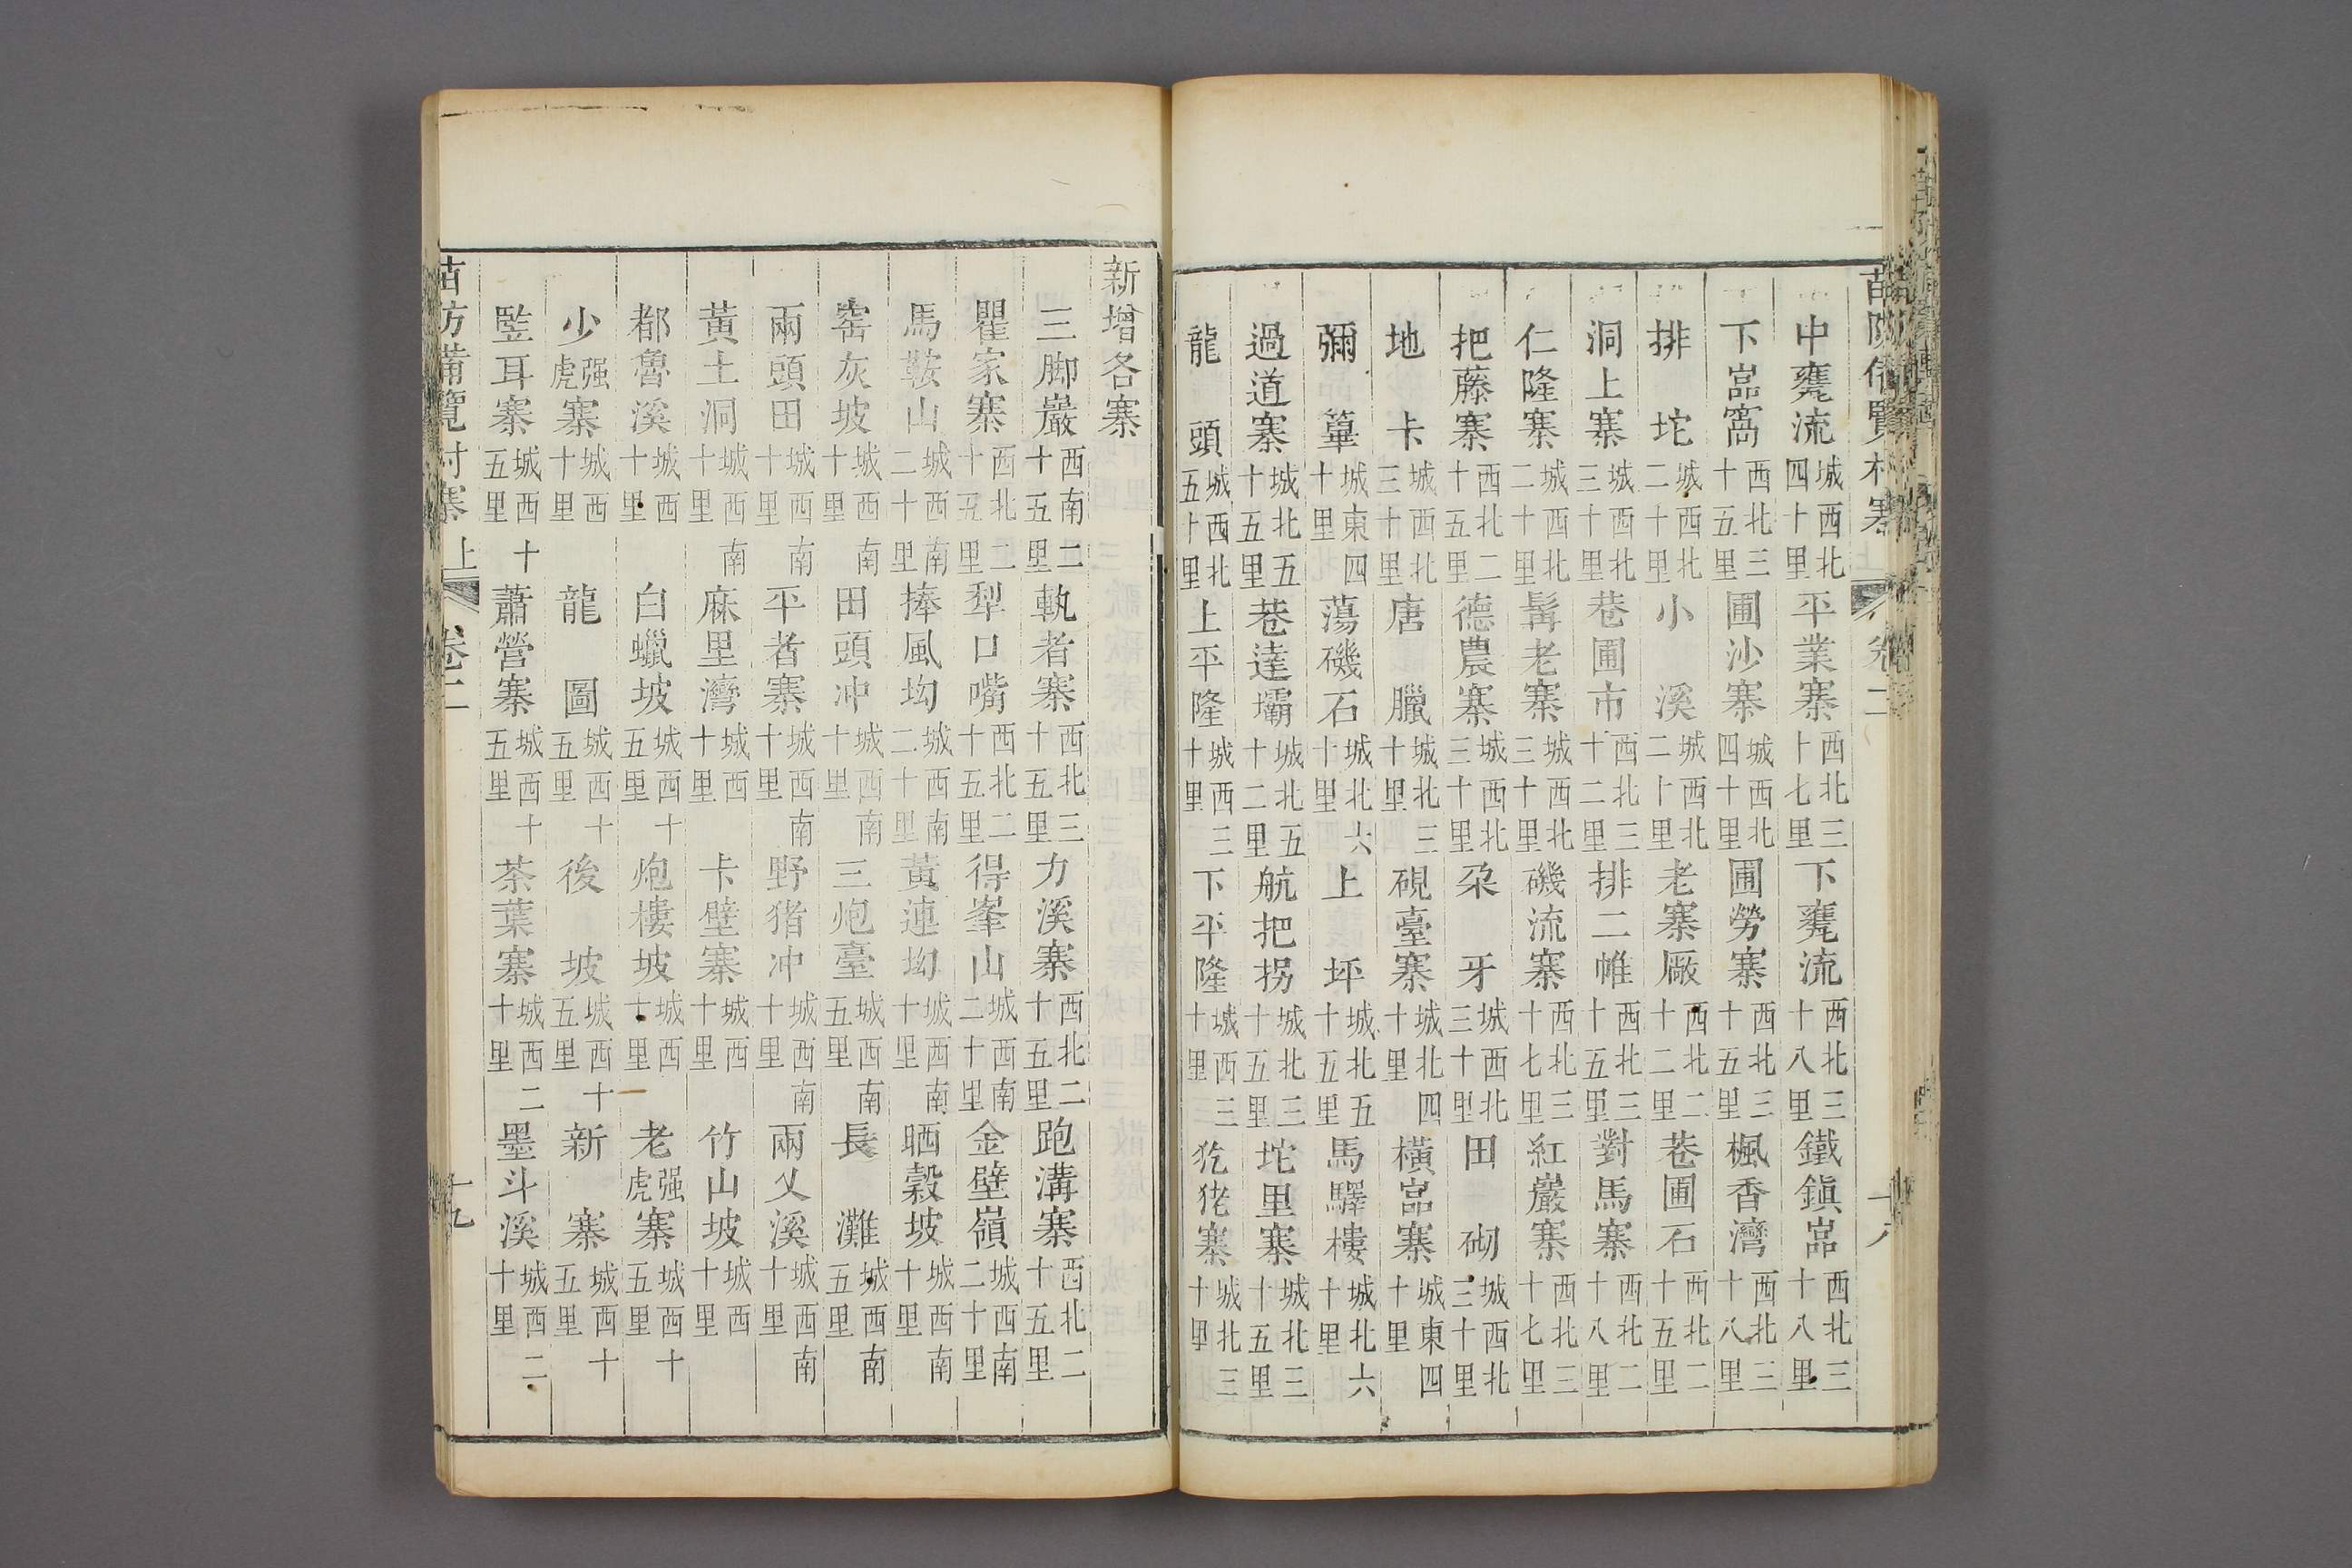 苗防備覽 村寨上 卷二 十八
中㽫流城西北四十里 平業寨西北三十七里 下㽫流西北三十八里 鐵鎭嵓西北三十八里
下嵓窩西北三十五里 圃沙寨城西北四十里 圃勞寨西北三十五里 楓香灣西北三十八里
排坨城西北二十里 小溪城西北二十里 老寨厰西北二十二里 巷圃石西北二十五里
洞上寨城西北三十里 巷圃市西北三十二里 排二帷西北三十五里 對馬寨西北二十八里
仁隆寨城西北二十里 髯老寨城西北三十里 磯流寨西北三十七里 紅巖寨西北三十七里
把藤寨西北二十五里 德農寨城西北三十里 朶牙城西北三十里 田砌城西北三十里
地卡城西北三十里 唐臘城北三十里 硯臺寨城北四十里 橫嵓寨城東四十里
彌篳城東四十里 蕩磯石城北六十里 上坪城北五十五里 馬驛樓城北六十里
過道寨城北五十五里 巷達壩城北五十二里 航把拐城北三十五里 坨里寨城北三十五里
龍頭城西北五十里 上平隆城西三十里 下平隆城西三十里 犵狫寨城北三十里
新增各寨
三脚巖西南二十五里 執者寨西北三十五里 力溪寨西北二十五里 跑溝寨西北二十五里
瞿家寨西北二十五里 犁口嘴西北二十五里 得峯山城西南二十里 金壁嶺城西南二十里
馬鞍山城西南二十里 捧風坳城西南二十里 黃連坳城西南十里 晒穀坡城西南十里
窰灰坡城西南十里 田頭冲城西南十里 三炮臺城西南五里 長灘城西南五里
兩頭田城西南十里 平者寨城西南十里 野猪冲城西南十里 兩乂溪城西南十里
黃土洞城西南十里 麻里灣城西十里 卡壁寨城西十里 竹山坡城西十里
都魯溪城西十里 白蠟坡城西十五里 炮樓坡城西十里 老强虎寨城西十五里
少强虎寨城西十里 龍圖城西十五里 後坡城西十五里 新寨城西十五里
䀍耳寨城西十五里 蕭營寨城西十五里 茶葉寨城西二十里 墨斗溪城西二十里
苗防備覽 村寨上 卷二 十九